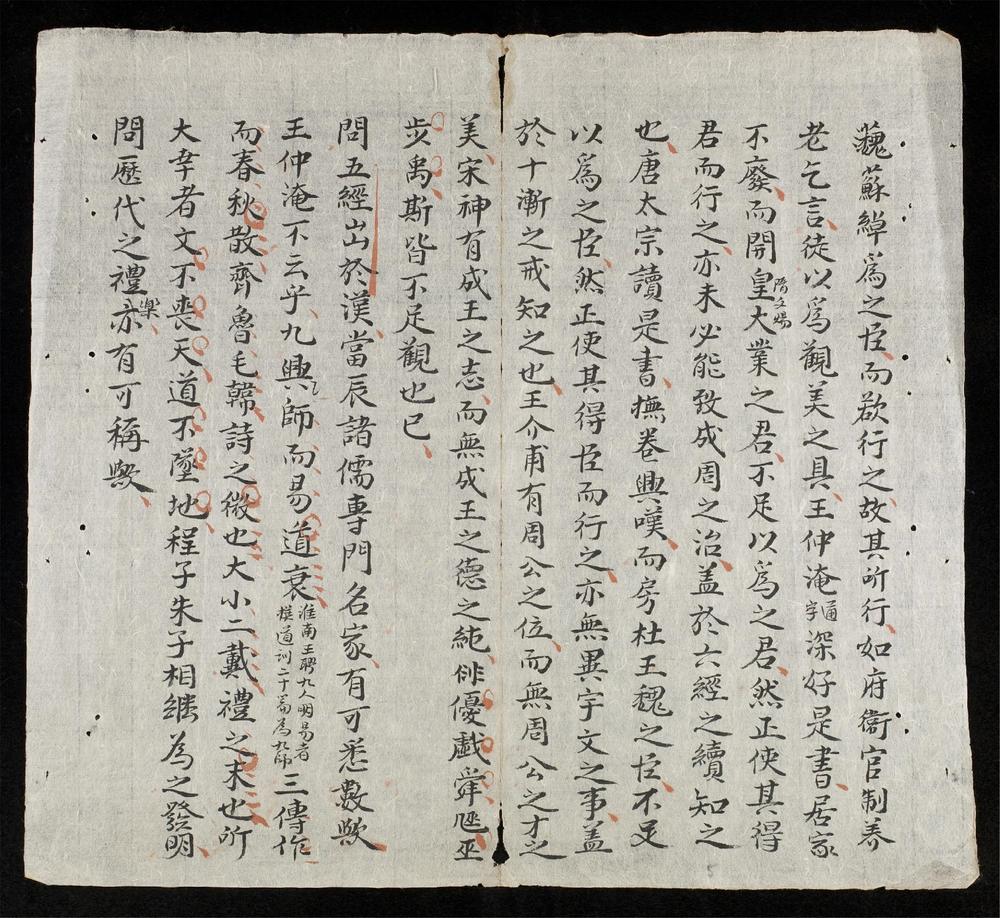 魏蘇綽爲之臣而欲行之故其所行如府衛官制養
老乞言徒以爲觀美之具王仲淹通字深好是書居家
不廢而開皇大業隋文煬之君不足以爲之君然正使其得
君而行之亦未必能致成周之治盖於六經之續知之
也唐太宗讀是書撫卷興嘆而房杜王魏之臣不足
以爲之臣然正使其得臣而行之亦無異宇文之事盖
於十漸之戒知之也王介甫有周公之位而無周公之才之
美宋神有成王之志而無成王之德之純俳優戲舜跎巫
步禹斯皆不足觀也已
問五經出於漢當辰諸儒專門名家有可悉數歟
王仲淹不云乎九興師而易道衰淮南王聘九人明易者撰道訓二十篇爲九師三傳作
而春秋散齊魯毛韓詩之微也大小二戴禮之末也所
大幸者文不喪天道不墜地程子朱子相继為之發明
問歷代之禮樂亦有可稱歟